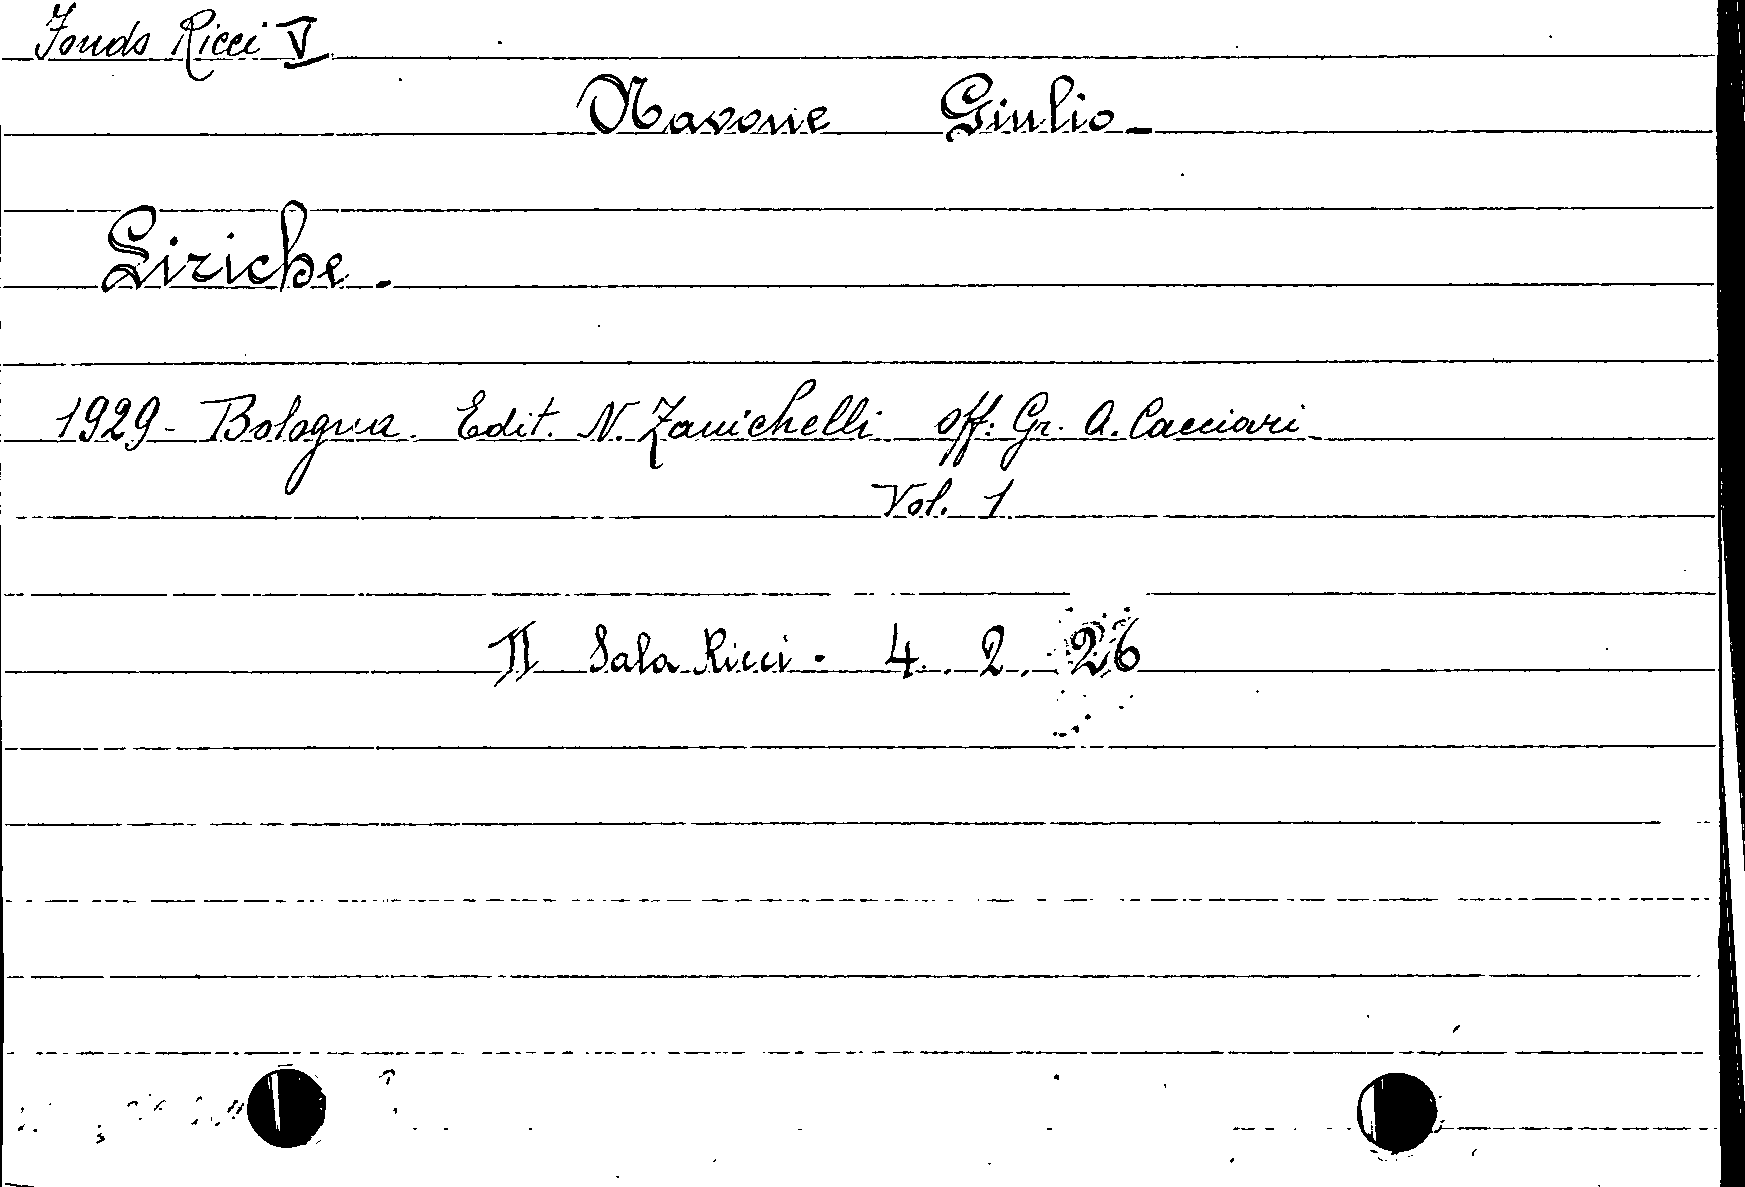 Fondo Ricci V
Navone Giulio -
Liriche.
1929 - Bologna. Edit. N. Zanichelli off: Gr. A. Cacciari
Vol. 1
II Sala Ricci - 4. 2. 26